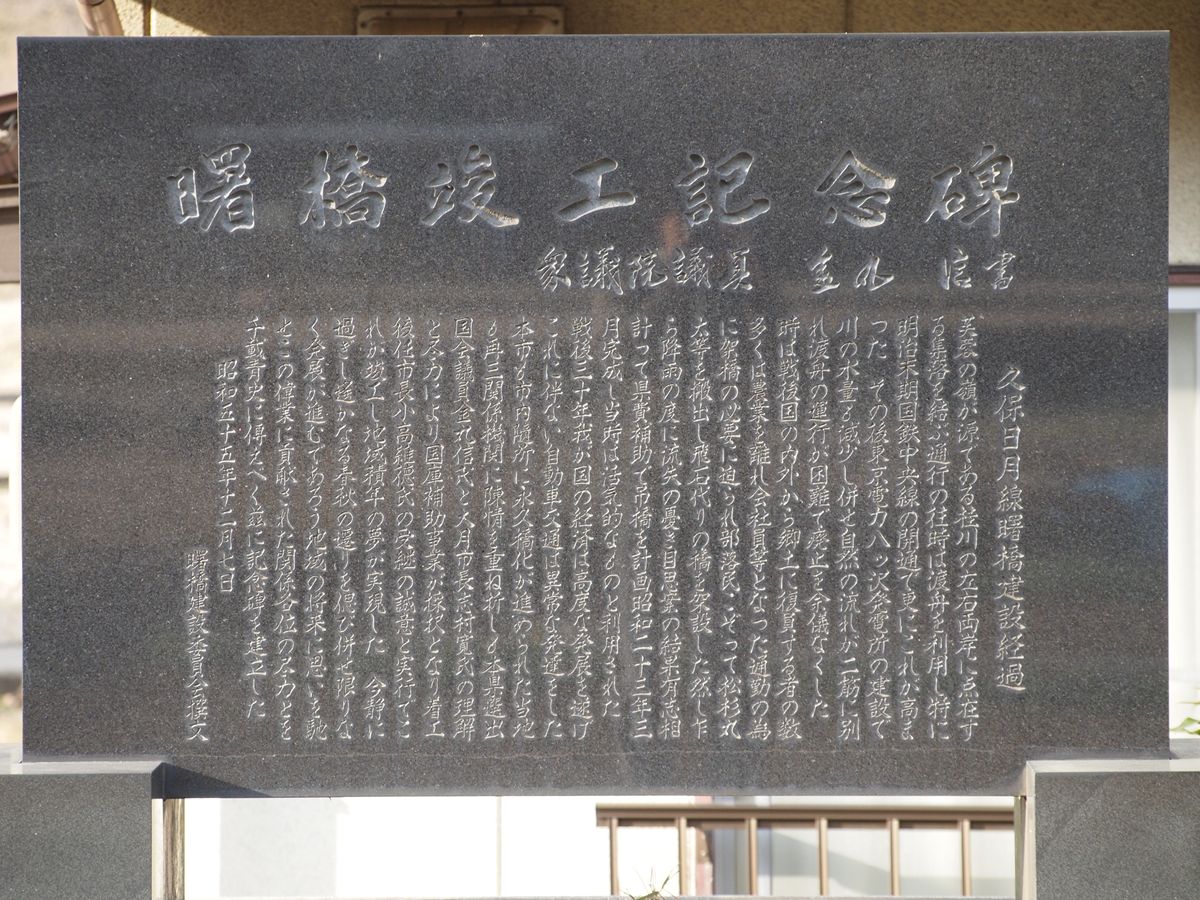 曙橋竣工記念碑
衆議院議員 金丸 信書
久保日月線曙橋建設経過
芙蓉の嶺が源である桂川の左右両岸に点在す
る集落を結ぶ通行の往時は渡舟を利用し特に
明治末期国鉄中央線の開通で更にこれが高ま
った その後東京電力八ッ沢発電所の建設で
川の水量も減少し併せ自然の流れが二筋に別
れ渡舟の運行が困難で廃止を余儀なくした
時は戦後国の内外から郷土に復員する者の数
多くは農業を離れ会社員等となった通勤の為
に架橋の必要に迫られ部落民こぞって松杉丸
太等を搬出し飛石代りの橋を架設した然し乍
ら降雨の度に流失の憂き目思案の結果有志相
計って県費補助で吊橋を計画昭和二十三年三
月完成し当時は活気的なものと利用された
戦後三十年我が国の経済は高度な発展を遂げ
これに伴ない自動車交通は異常な発達をした
本市も市内随所に永久橋化が進められた当地
も再三関係機関に陳情を重ね折しも本県選出
国会議員金丸信氏と大月市長志村寛氏の理解
と尽力により国庫補助事業が採択となり着工
後任市長小高雄徳氏の受継の誠意と実行でこ
れが竣工し地域積年の夢が実現した 今静に
過ぎし遥かなる春秋の還りを偲び併せ限りな
く発展が進むであろう地域の将来に思いを馳
せこの偉業に貢献された関係各位の尽力とを
千載青史に傳えべく茲に記念碑を建立した
昭和五十五年十二月七日
曙橋建設委員会撰文